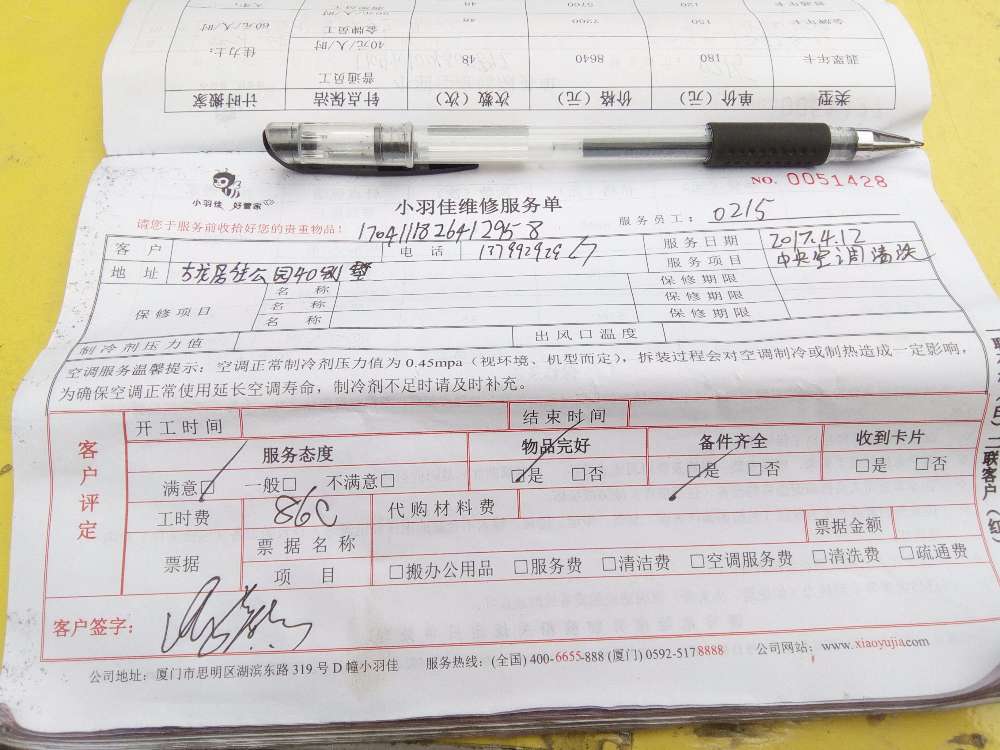 类型 单价（元） 价格（元） 次数（次） 钟点保洁 计时搬家
翡翠年卡 180 8640 48 普通员工 40元/人/时 佳力士：
金牌年卡 150 7200 48 金牌员工 60元/人/时
120 5760 48
NO. 0051428
小羽佳 好管家
小羽佳维修服务单
请您于服务前收拾好您的贵重物品！ 17041118264129 58
服务员工： 0215
客户 电话 服务日期 2017.4.12
地址 古龙居住公园40#别墅 服务项目 中央空调清洗
保修项目 名称 保修期限
名称 保修期限
名称 保修期限
制冷剂压力值 出风口温度
空调服务温馨提示：空调正常制冷剂压力值为 0.45mpa（视环境、机型而定），拆装过程会对空调制冷或制热造成一定影响，
为确保空调正常使用延长空调寿命，制冷剂不足时请及时补充。
客户评定
开工时间 结束时间
服务态度 物品完好 备件齐全 收到卡片
满意□ 一般□ 不满意□ □是 □否 □是 □否 □是 □否
工时费 860 代购材料费
票据 票据名称 票据金额
项目 □搬办公用品 □服务费 □清洁费 □空调服务费 □清洗费 □疏通费
客户签字：
公司地址：厦门市思明区湖滨东路 319 号 D 幢小羽佳 服务热线：(全国) 400-6655-888 (厦门) 0592-5178888 公司网站：www.xiaoyujia.com
二联客户（红）